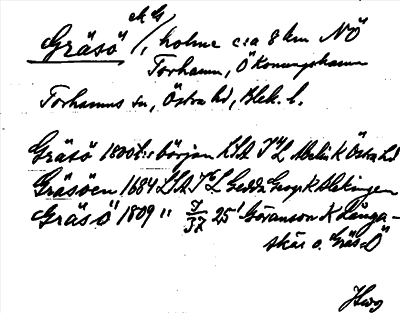 Gräsö /, holme c:a 8 km NÖ
Torhamn, Ö Konungshamn
Torhamns sn, Östra hd, Blek. l.
Gräsö 1800t:s början K Östra hd
Gräsöen 1684 Gedda Geogr. K Blekingen
Gräsö 1809 " J/37 25' Göranson K Långa-
skär o. Gräs-Ö
Hwg